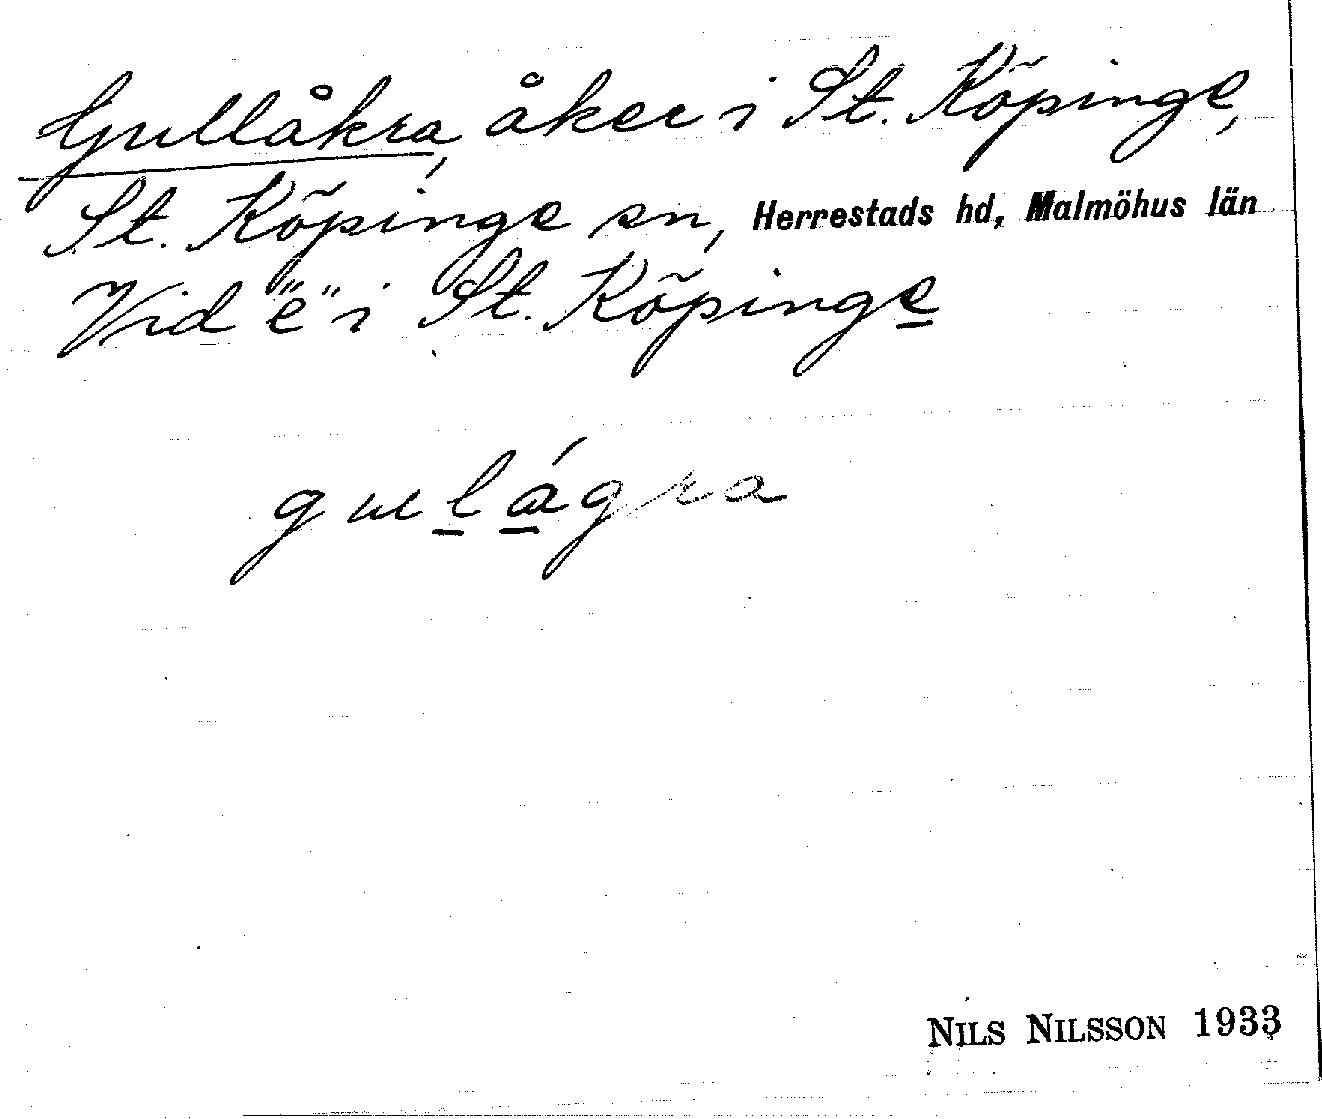 Gullåkra, åker i St. Köpinge,
St. Köpinge sn, Herrestads hd, Malmöhus län
Vid "e" i St. Köpinge
gulágra
NILS NILSSON 1933